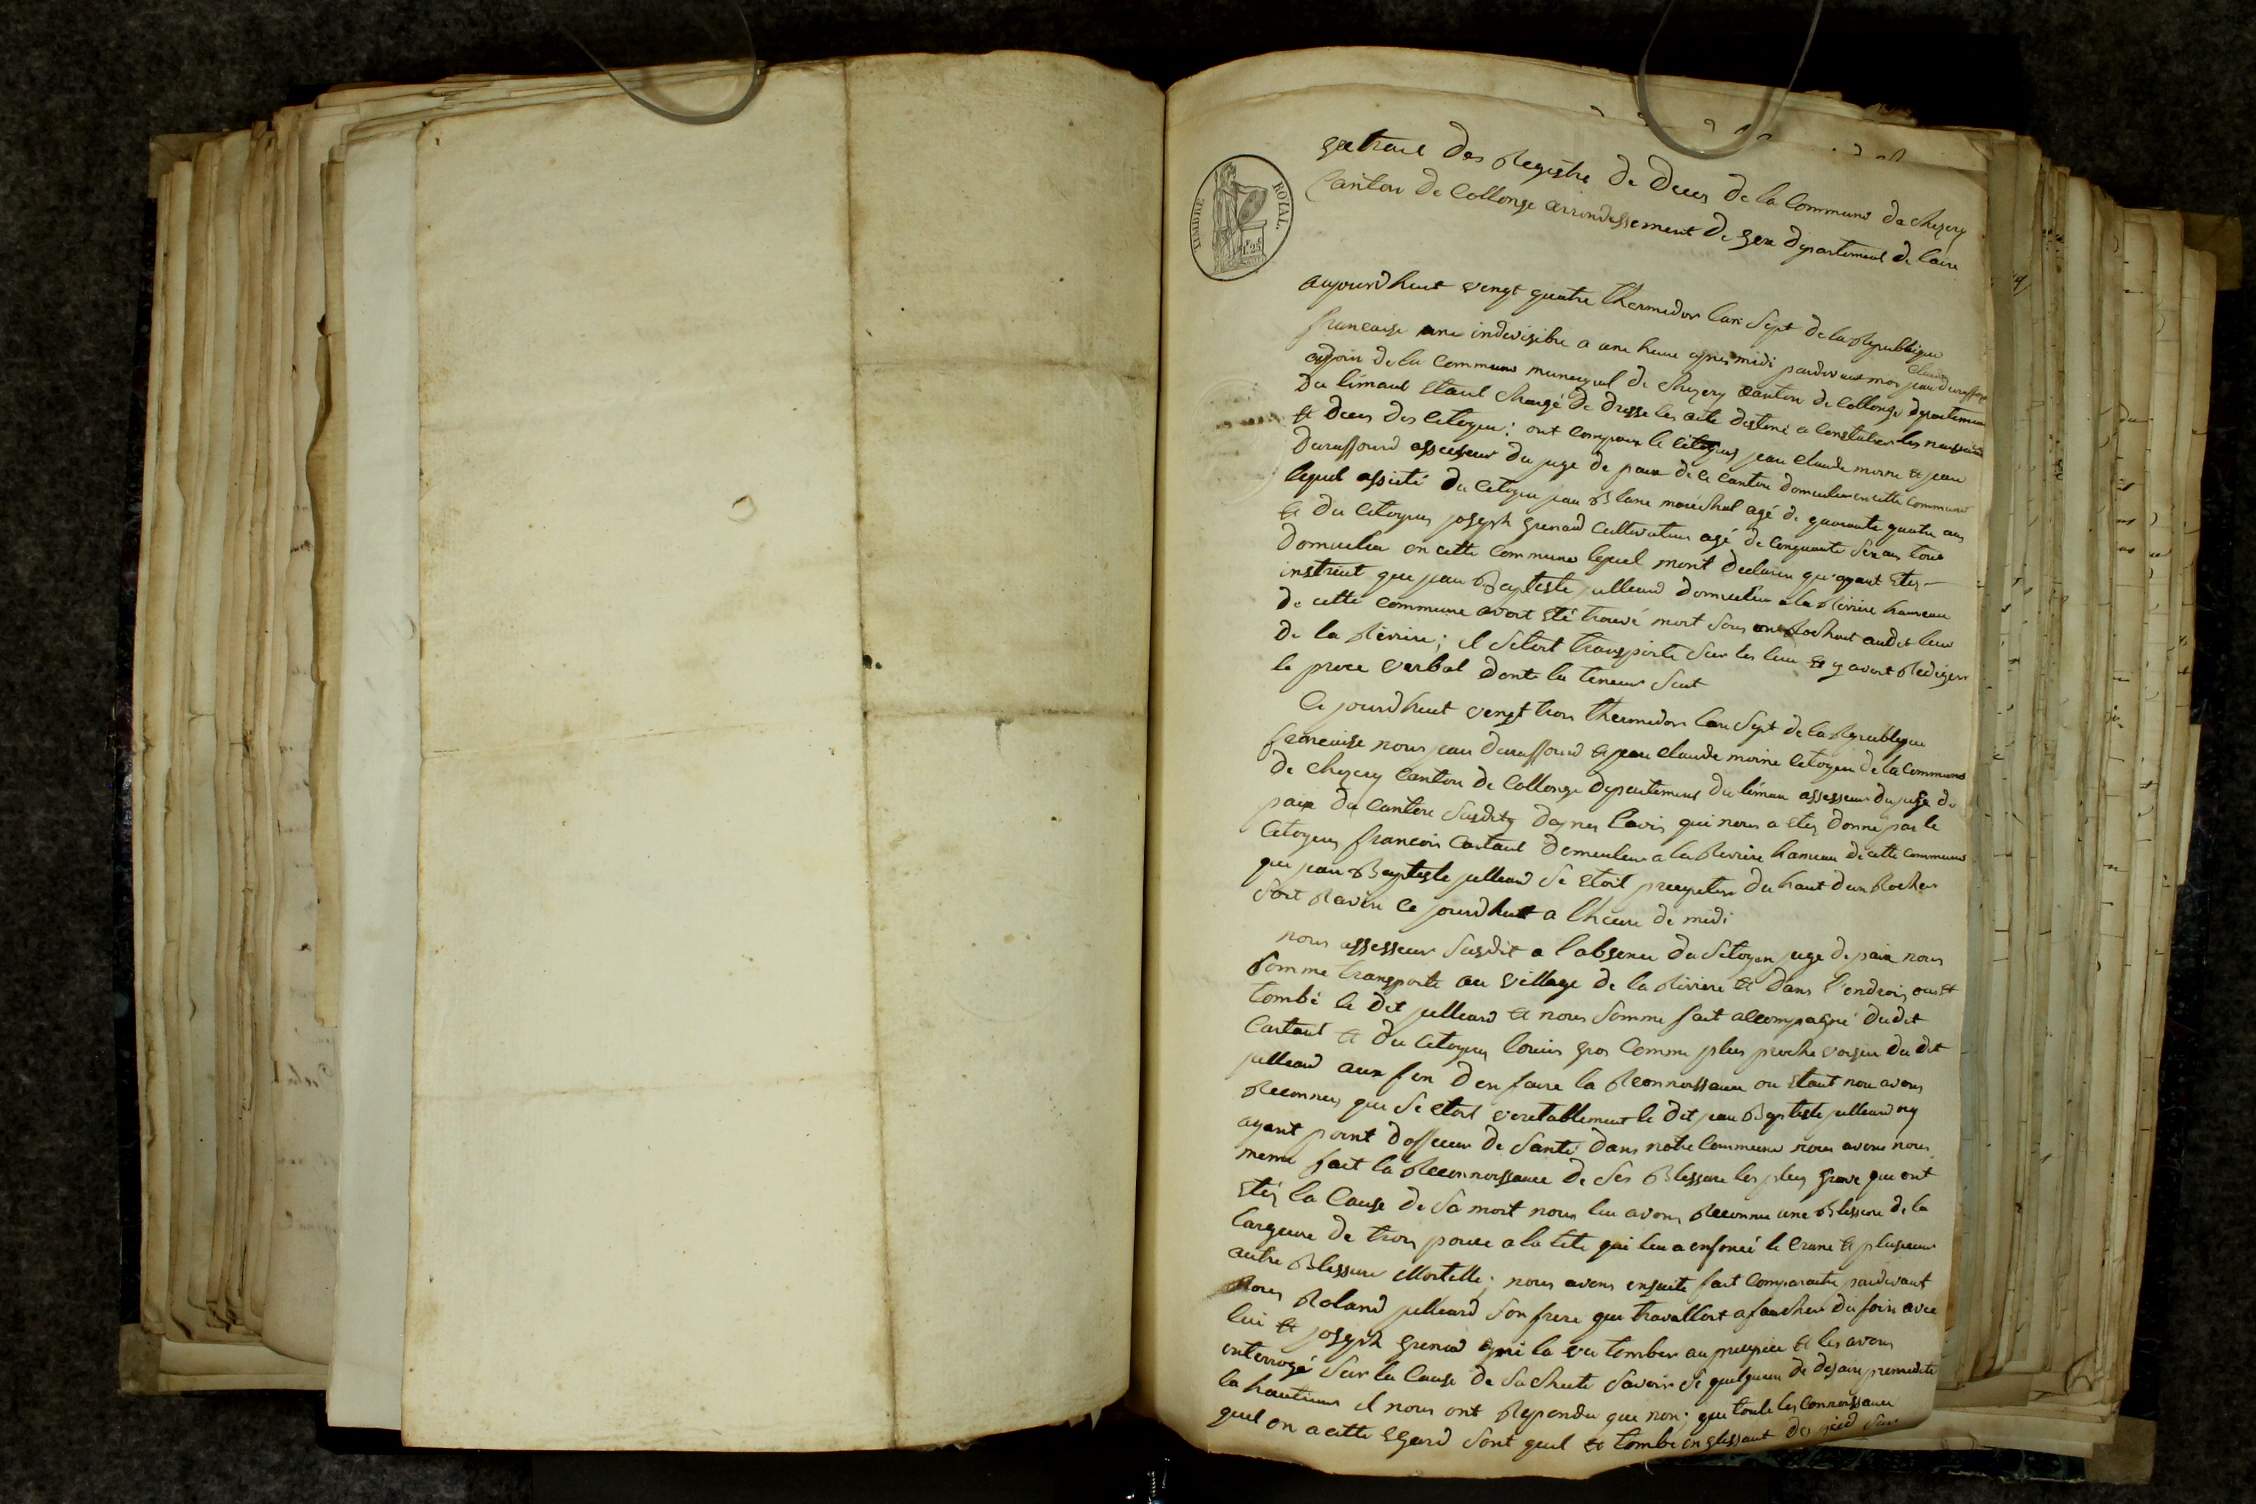 TIMBRE ROYAL.
1f 25c
Extrait des Registre de Deces de la Commune de Chezery
Canton de Collonge arrondissement de gex departement de lain
aujourdhuit vengt quatre thermidor lan Sept de la Republique
francaise une indivisible a une heure apres midi pardevant moi jean Claude Duraffourd
adjoin de la Commune municipal de Chezery Canton de Collonge departement
Du limant Etant Chargé de dresse les acte destiné a Constater les naissance
et deces des Citoyen: ont comparu le Citoyens jean Claude moine et jean
Duraffourd assesseur du juge de paix de ce Canton domicilier en cette Commune
lequel assisté du Citoyen jean Blanc maréchal agé de quarante quatre ans
et du Citoyens joseph grenard Cultivateur agé de Cenquante Six ans tous
domicilier en cette Commune lequel mont declarer qu'ayant Etés
instruit que jean Baptiste julliard domicilier a la Rivière hameau
de cette commune avoit Eté trouvé mort Sous un Rochert audit lieu
de la Rivière; il S'etoit transporté Sur les lieu et y avoit Rediger
le proce verbal dont la teneur Suit
Ce jourdhuit vengt trois thermidor lan Sept de la Republique
francaise nous jean duraffourd et jean Claude moine Citoyen de la Commune
de Chezery Canton de Collonge departement du liman assesseur du juge de
paix du Canton Susdits dapres lavis qui nous a Etés donné par le
Citoyens francois Cartant demeuleur a la Rivière hameau de cette Commune
que jean Baptiste julliard Se Etoit precipiter du haut dun Rocher
Soit Ravin Ce jourdhuit a lheure de midi
nous assesseur Susdit a l'absence du Sitoyen juge de paix nous
Somme transporté au village de la Rivière et dans l'endrois ou Et
tombé le dit julliard et nous Somme fait accompagné dudit
Cartant et du Citoyens louis gros Comme plus proche voisin du dit
julliard aux fin d'en faire la Reconnoissance ou Etant nou avons
Reconnus que Se Etoit veretablement le dit jean Baptiste julliard ny
ayant point dofficier de Santé dans notre Commune nous avons nous
meme fait la Reconnoissance de Ses Blessure les plus grave que ont
Etés la Cause de Sa mort nous lui avons Reconnu une Blessure de la
largeure de trois pouce a la tete qui lui a enfoncé le Crane et plusieur
autre Blessure Mortelle; nous avons ensuite fait Comparaitre pardevant
Nous Roland julliard Son frere que travalloit a faucher du foin avec
lui et joseph grenard qui la vu tomber au precipice et les avons
interrogé Sur la Cause de Sa Chute Savoir Si quelquun de dessin premedité
la hauteur il nous ont Repondu que non; que toute les Connoissance
quil on a cette Egard Sont quil et tombé en glissant des pied Sur